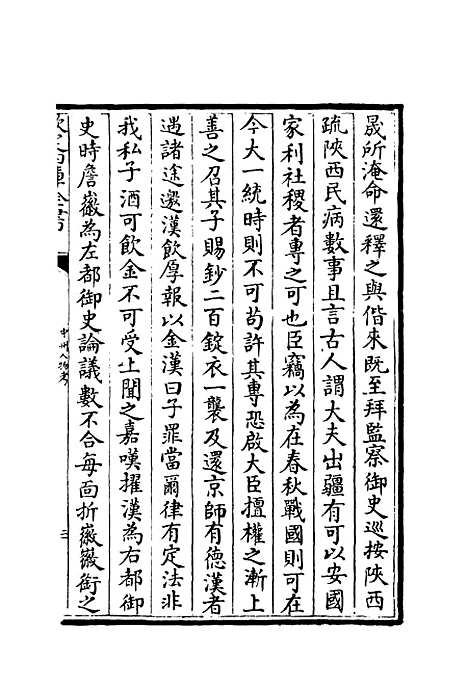 晟所淹命還釋之與偕來既至拜監察御史巡按陜西
疏陜西民病數事且言古人謂大夫出疆有可以安國
家利社稷者專之可也臣竊以為在春秋戰國則可在
今大一統時則不可苟許其專恐啟大臣擅權之漸上
善之召其子賜鈔二百錠衣一襲及還京師有德漢者
遇諸途邀漢飲厚報以金漢曰子罪當爾律有定法非
我私子酒可飲金不可受上聞之嘉嘆擢漢為右都御
史時詹徽為左都御史論議數不合每面折徽徽銜之
欽定四庫全書
中州人物考
三